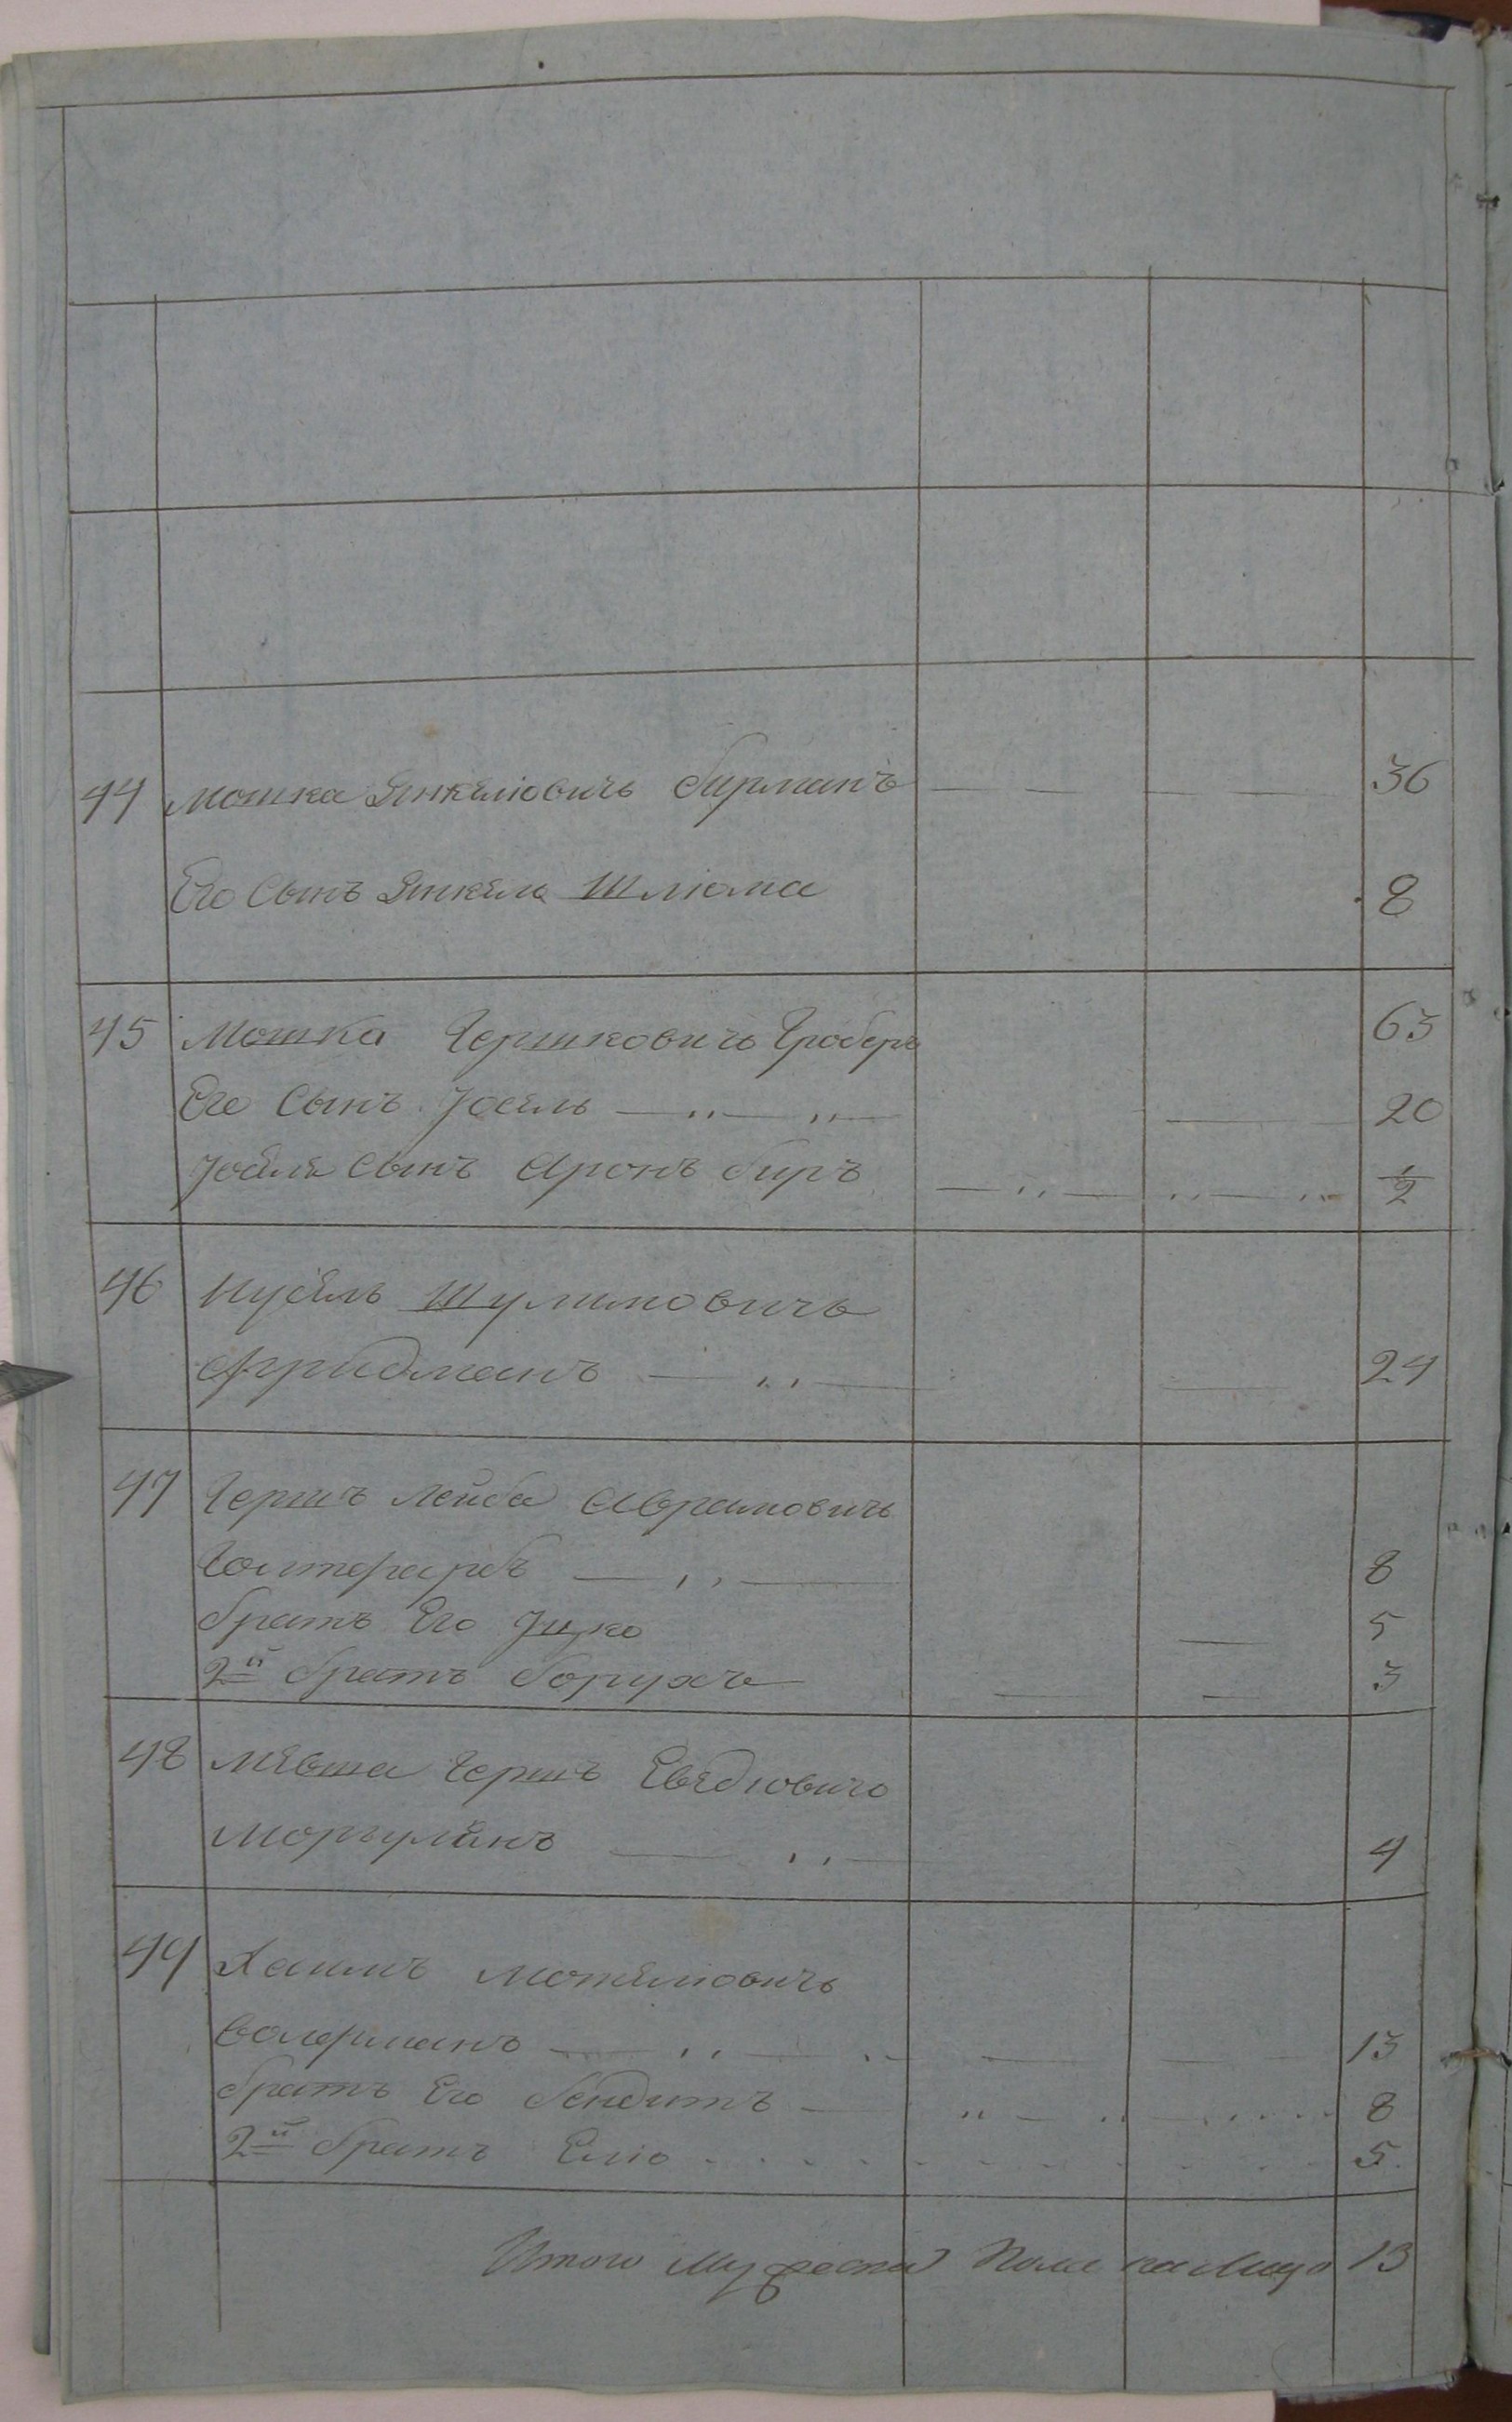 44 Мошка Янкелiовичъ Бирманъ 36
Его Сынъ Янкель Шлiома 8
45 Мошка Гершковичъ Гроберъ 63
Его Сынъ Iосель 20
Iоселя Сынъ Аронъ Биръ 1/2
46 Нусель Шулимовичъ
Фридманъ 24
47 Гершъ Лейба Аврамовичъ
8
братъ Его Ицко 5
2й братъ Борухъ 3
48 Гершъ
Моргулянъ 4
49 Хаимъ Мотелiовичъ
13
братъ Его Бендитъ 8
2й братъ Елiо 5
Итого Мужеска Пола на Лицо 13